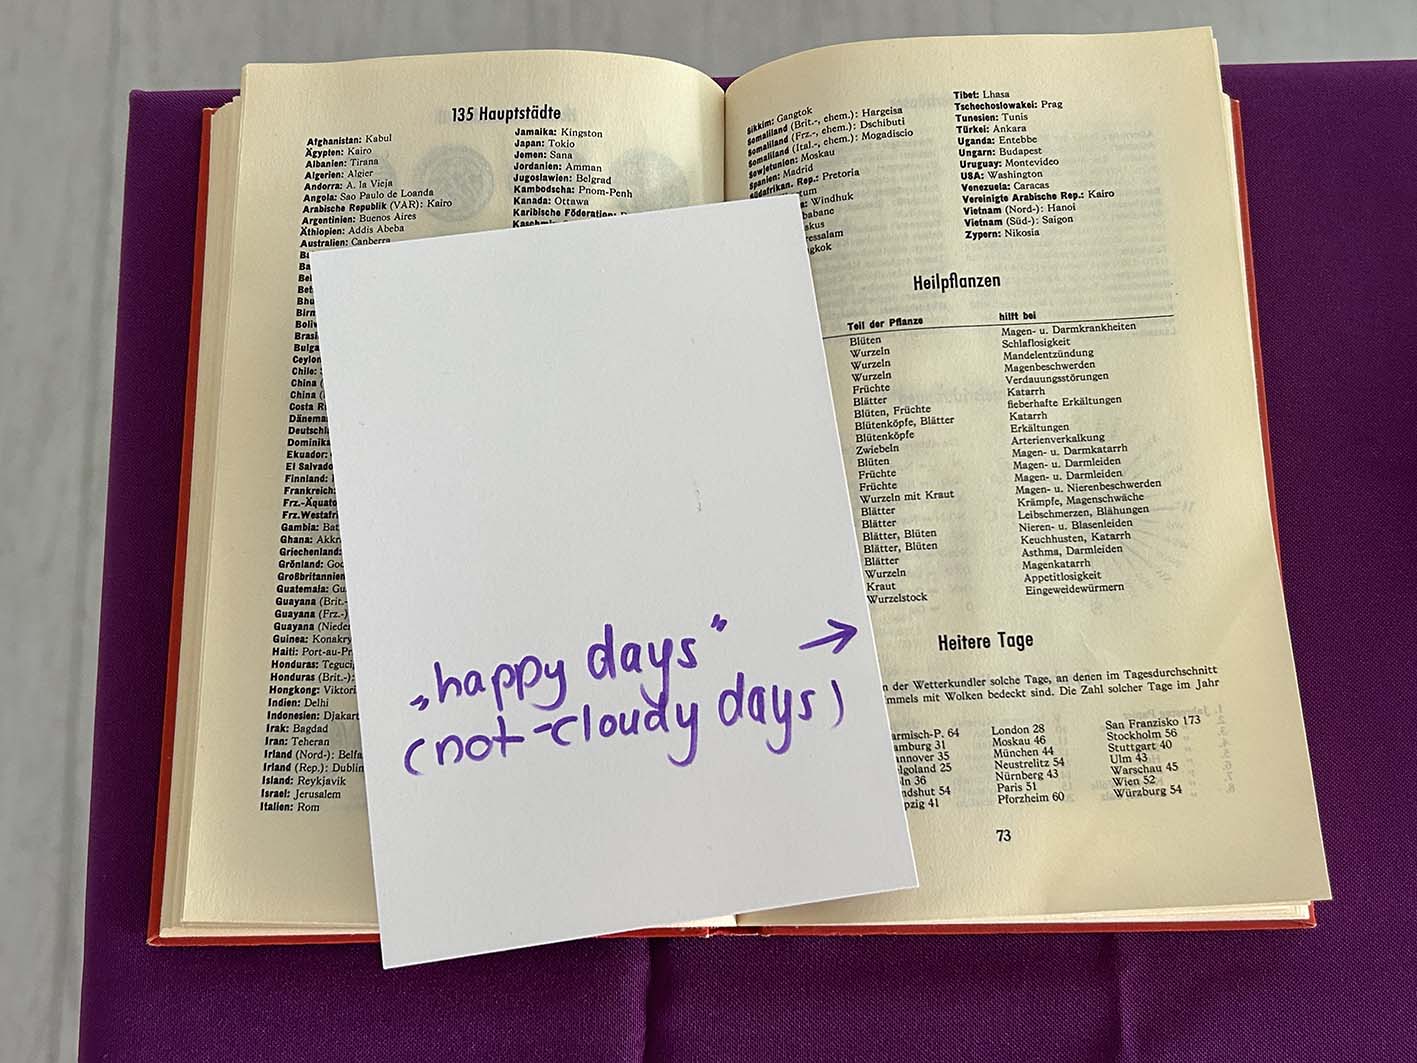 135 Hauptstädte
Afghanistan: Kabul
Ägypten: Kairo
Albanien: Tirana
Algerien: Algier
Andorra: A. la Vieja
Angola: Sao Paulo de Loanda
Arabische Republik (VAR): Kairo
Argentinien: Buenos Aires
Äthiopien: Addis Abeba
Australien: Canberra
Boliv
Brasi
Bulga
Ceylon
Chile:
China (
China (
Costa R
Dänema
Deutschl
Dominika
Ekuador:
El Salvado
Finnland:
Frankreich:
Frz.-Äquato
Frz.Westafri
Gambia: Bat
Ghana: Akkr
Griechenland:
Grönland: God
Großbritannien
Guatemala: Gu
Guayana (Brit.-
Guayana (Frz.-)
Guayana (Nieder
Guinea: Konakry
Haiti: Port-au-Pr
Honduras: Teguci
Honduras (Brit.-):
Hongkong: Viktori
Indien: Delhi
Indonesien: Djakart
Irak: Bagdad
Iran: Teheran
Irland (Nord-): Belfa
Irland (Rep.): Dublin
Island: Reykjavik
Israel: Jerusalem
Italien: Rom
Jamaika: Kingston
Japan: Tokio
Jemen: Sana
Jordanien: Amman
Jugoslawien: Belgrad
Kambodscha: Pnom-Penh
Kanada: Ottawa
Karibische Föderation:
„happy days”
(not-cloudy days)
→
Sikkim: Gangtok
Somaliland (Brit.-, ehem.): Hargeisa
Somaliland (Frz.-, ehem.): Dschibuti
Somaliland (Ital.-, ehem.): Mogadiscio
Sowjetunion: Moskau
Spanien: Madrid
Südafrikan. Rep.: Pretoria
tum
Windhuk
babane
skus
ressalam
gkok
Tibet: Lhasa
Tschechoslowakei: Prag
Tunesien: Tunis
Türkei: Ankara
Uganda: Entebbe
Ungarn: Budapest
Uruguay: Montevideo
USA: Washington
Venezuela: Caracas
Vereinigte Arabische Rep.: Kairo
Vietnam (Nord-): Hanoi
Vietnam (Süd-): Saigon
Zypern: Nikosia
Heilpflanzen
Teil der Pflanze hilft bei
Blüten Magen- u. Darmkrankheiten
Wurzeln Schlaflosigkeit
Wurzeln Mandelentzündung
Wurzeln Magenbeschwerden
Früchte Verdauungsstörungen
Blätter Katarrh
Blüten, Früchte fieberhafte Erkältungen
Blütenköpfe, Blätter Katarrh
Blütenköpfe Erkältungen
Zwiebeln Arterienverkalkung
Blüten Magen- u. Darmkatarrh
Früchte Magen- u. Darmleiden
Früchte Magen- u. Darmleiden
Wurzeln mit Kraut Magen- u. Nierenbeschwerden
Blätter Krämpfe, Magenschwäche
Blätter Leibschmerzen, Blähungen
Blätter, Blüten Nieren- u. Blasenleiden
Blätter, Blüten Keuchhusten, Katarrh
Blätter Asthma, Darmleiden
Wurzeln Magenkatarrh
Kraut Appetitlosigkeit
Wurzelstock Eingeweidewürmern
Heitere Tage
n der Wetterkundler solche Tage, an denen im Tagesdurchschnitt
mmels mit Wolken bedeckt sind. Die Zahl solcher Tage im Jahr
armisch-P. 64 London 28 San Franzisko 173
amburg 31 Moskau 46 Stockholm 56
annover 35 München 44 Stuttgart 40
lgoland 25 Neustrelitz 54 Ulm 43
ln 36 Nürnberg 43 Warschau 45
ndshut 54 Paris 51 Wien 52
ipzig 41 Pforzheim 60 Würzburg 54
73